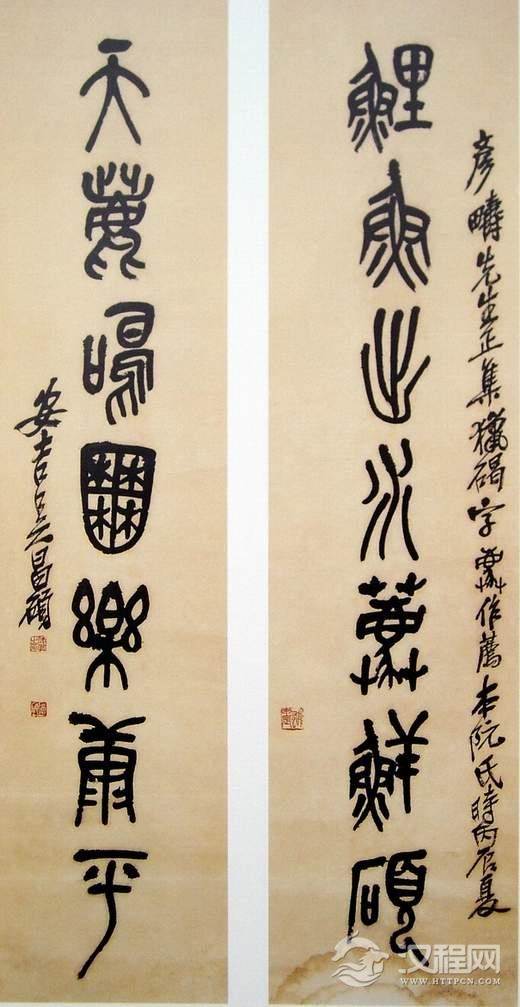 彥疇先生正集獵碣字作薦本阮氏時丙辰夏
鯉魚出水薦鮮碩
天鹿鳴囿樂康平
安吉吳昌碩
汉程网
WWW.HTTPCN.COM